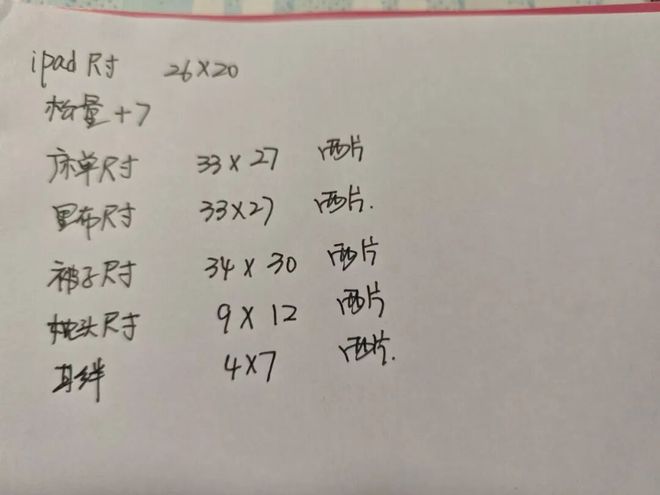 ipad尺寸 26×20
松量+7
床单尺寸 33×27 两片
里布尺寸 33×27 两片.
被子尺寸 34×30 两片
枕头尺寸 9×12 两片
耳绊 4×7 两片.